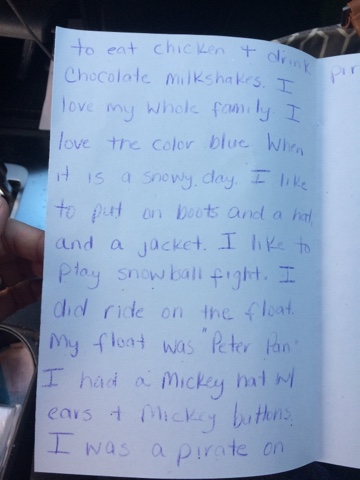 to eat chicken + drink
Chocolate milkshakes. I
love my whole family. I
love the color blue. When
it is a snowy day. I like
to put on boots and a hat
and a jacket. I like to
play snowball fight. I
did ride on the float.
My float was "Peter Pan."
I had a Mickey hat w/
ears + Mickey buttons.
I was a pirate on